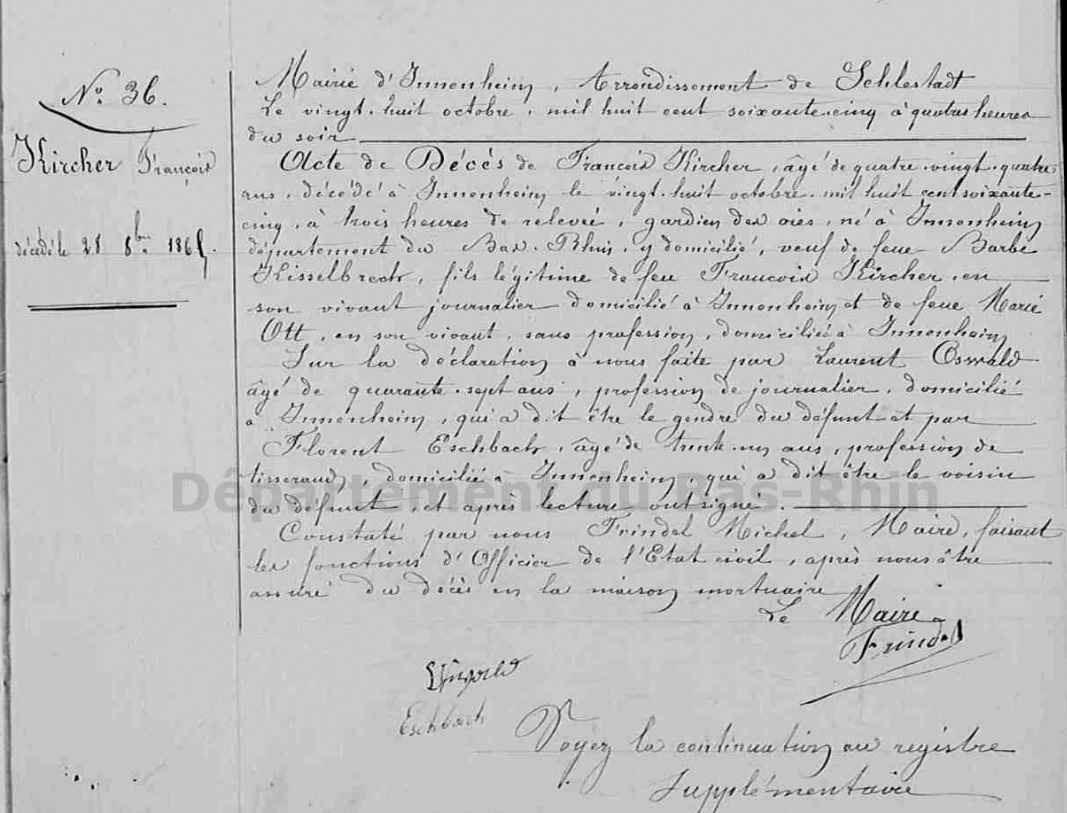 No. 36.
Kircher François
décédé le 28 8bre 1865.
Mairie d'Innenheim, Arrondissement de Schlestadt
Le vingt-huit octobre, mil huit cent soixante-cinq à quatre heures
du soir
Acte de Décès de François Kircher, âgé de quatre-vingt-quatre
ans, décédé à Innenheim le vingt-huit octobre mil huit cent soixante-
cinq, à trois heures de relevée, gardien des oies, né à Innenheim
département du Bas-Rhin, y domicilié, veuf de feue Barbe
Kisselbrech, fils légitime de feu François Kircher, en
son vivant journalier domicilié à Innenheim et de feue Marie
Ott, en son vivant, sans profession, domiciliée à Innenheim
Sur la déclaration à nous faite par Laurent Oswald
âgé de quarante-sept ans, profession de journalier, domicilié
à Innenheim, qui a dit être le gendre du défunt et par
Florent Eschbach, âgé de trente-un ans, profession de
tisserand, domicilié à Innenheim, qui a dit être le voisin
du défunt, et après lecture ont signé.
Constaté par nous Frindel Michel, Maire, faisant
les fonctions d'Officier de l'Etat civil, après nous être
assuré du décès en la maison mortuaire
Le Maire
Frindel
Eschbach
Voyez la continuation au registre
supplémentaire
Département du Bas-Rhin